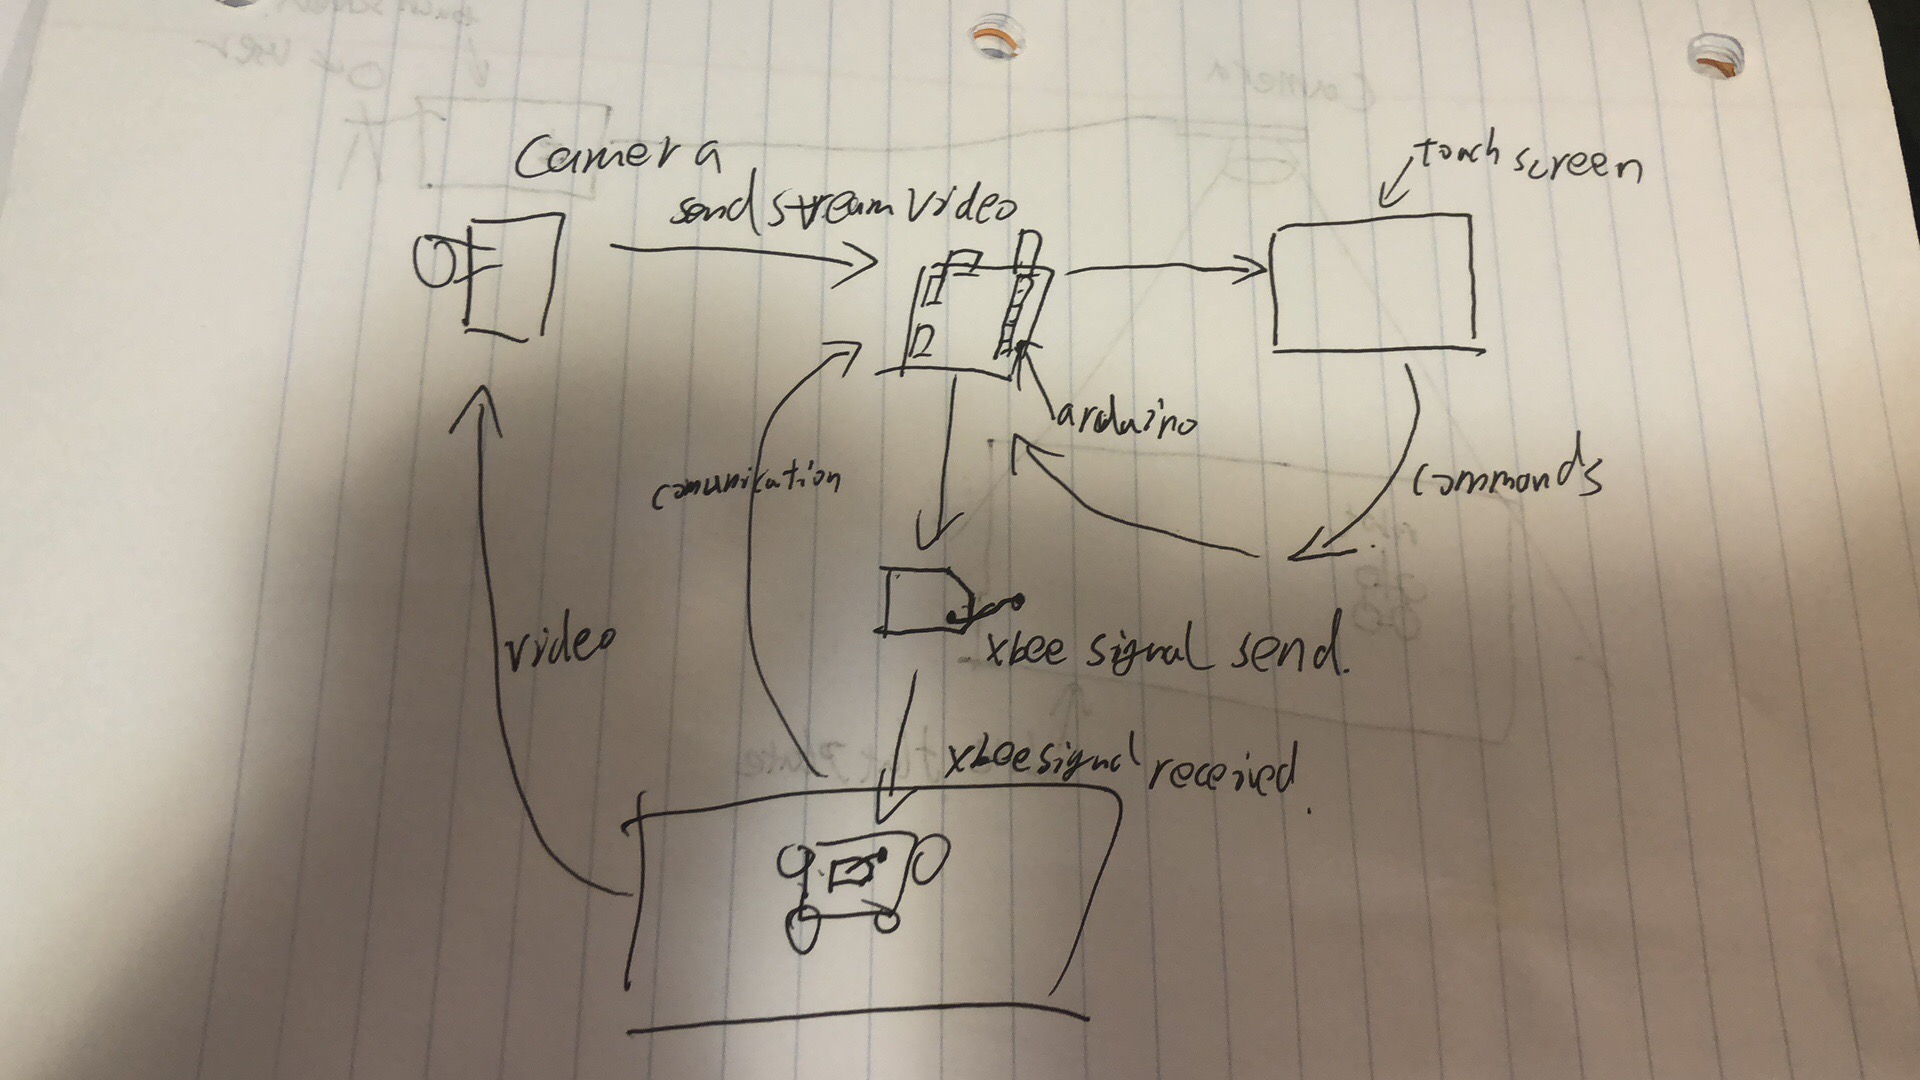 Camera
send stream video
touch screen
arduino
comunication
commands
video
xbee signal send.
xbee signal received.